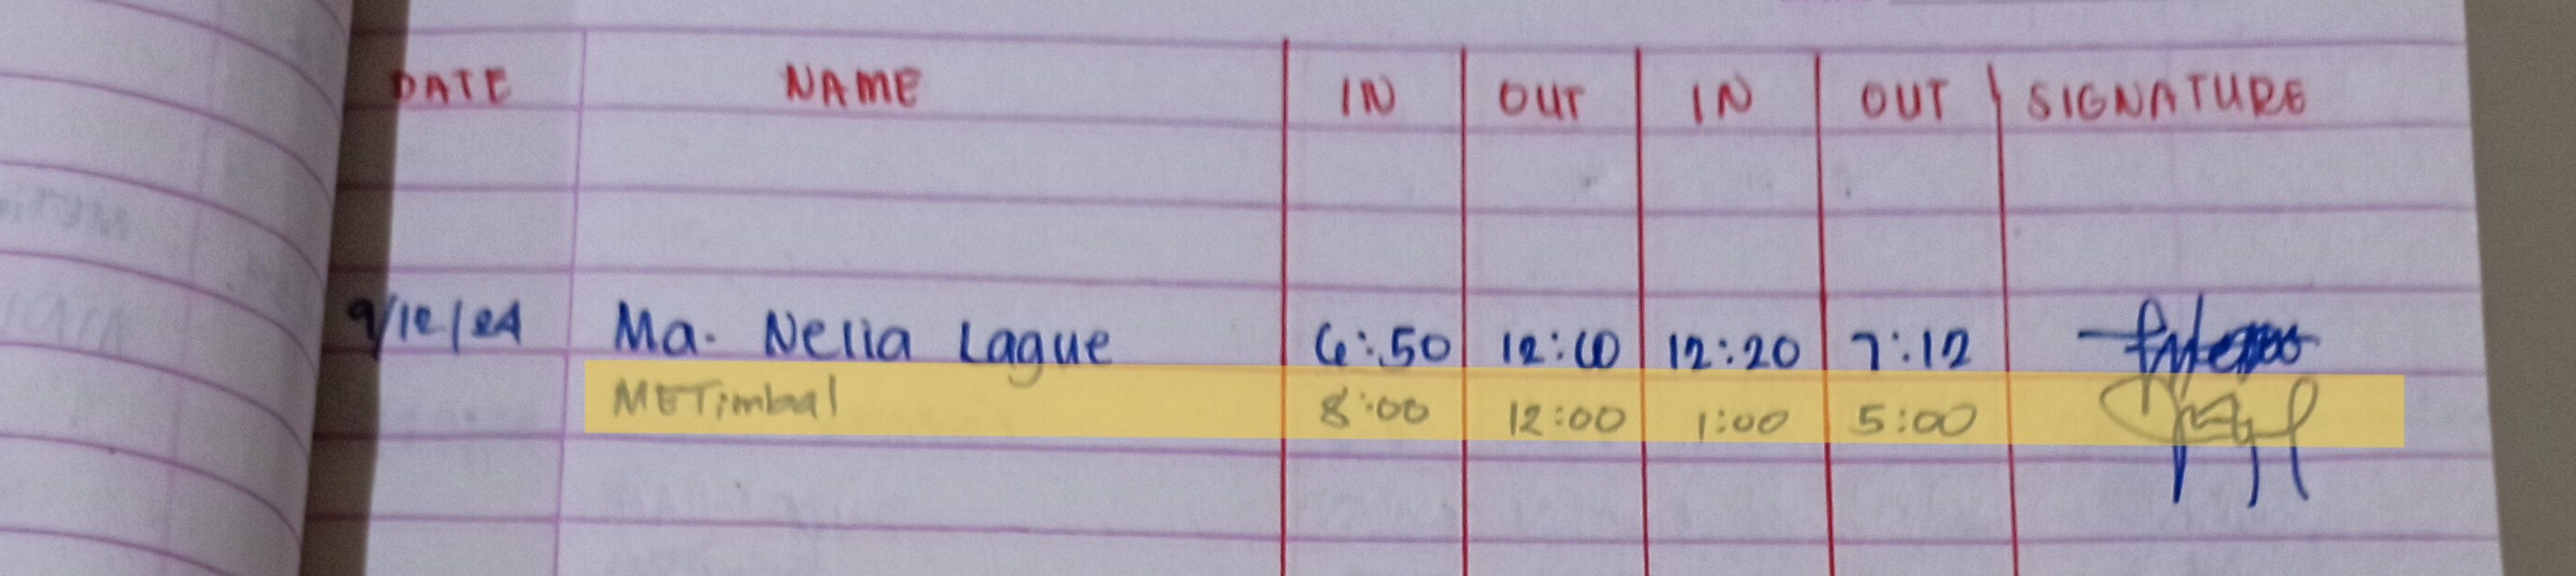 DATE NAME IN OUT IN OUT SIGNATURE
9/12/24 Ma. Nelia Lague 6:50 12:10 12:20 7:12
METimbal 8:00 12:00 1:00 5:00